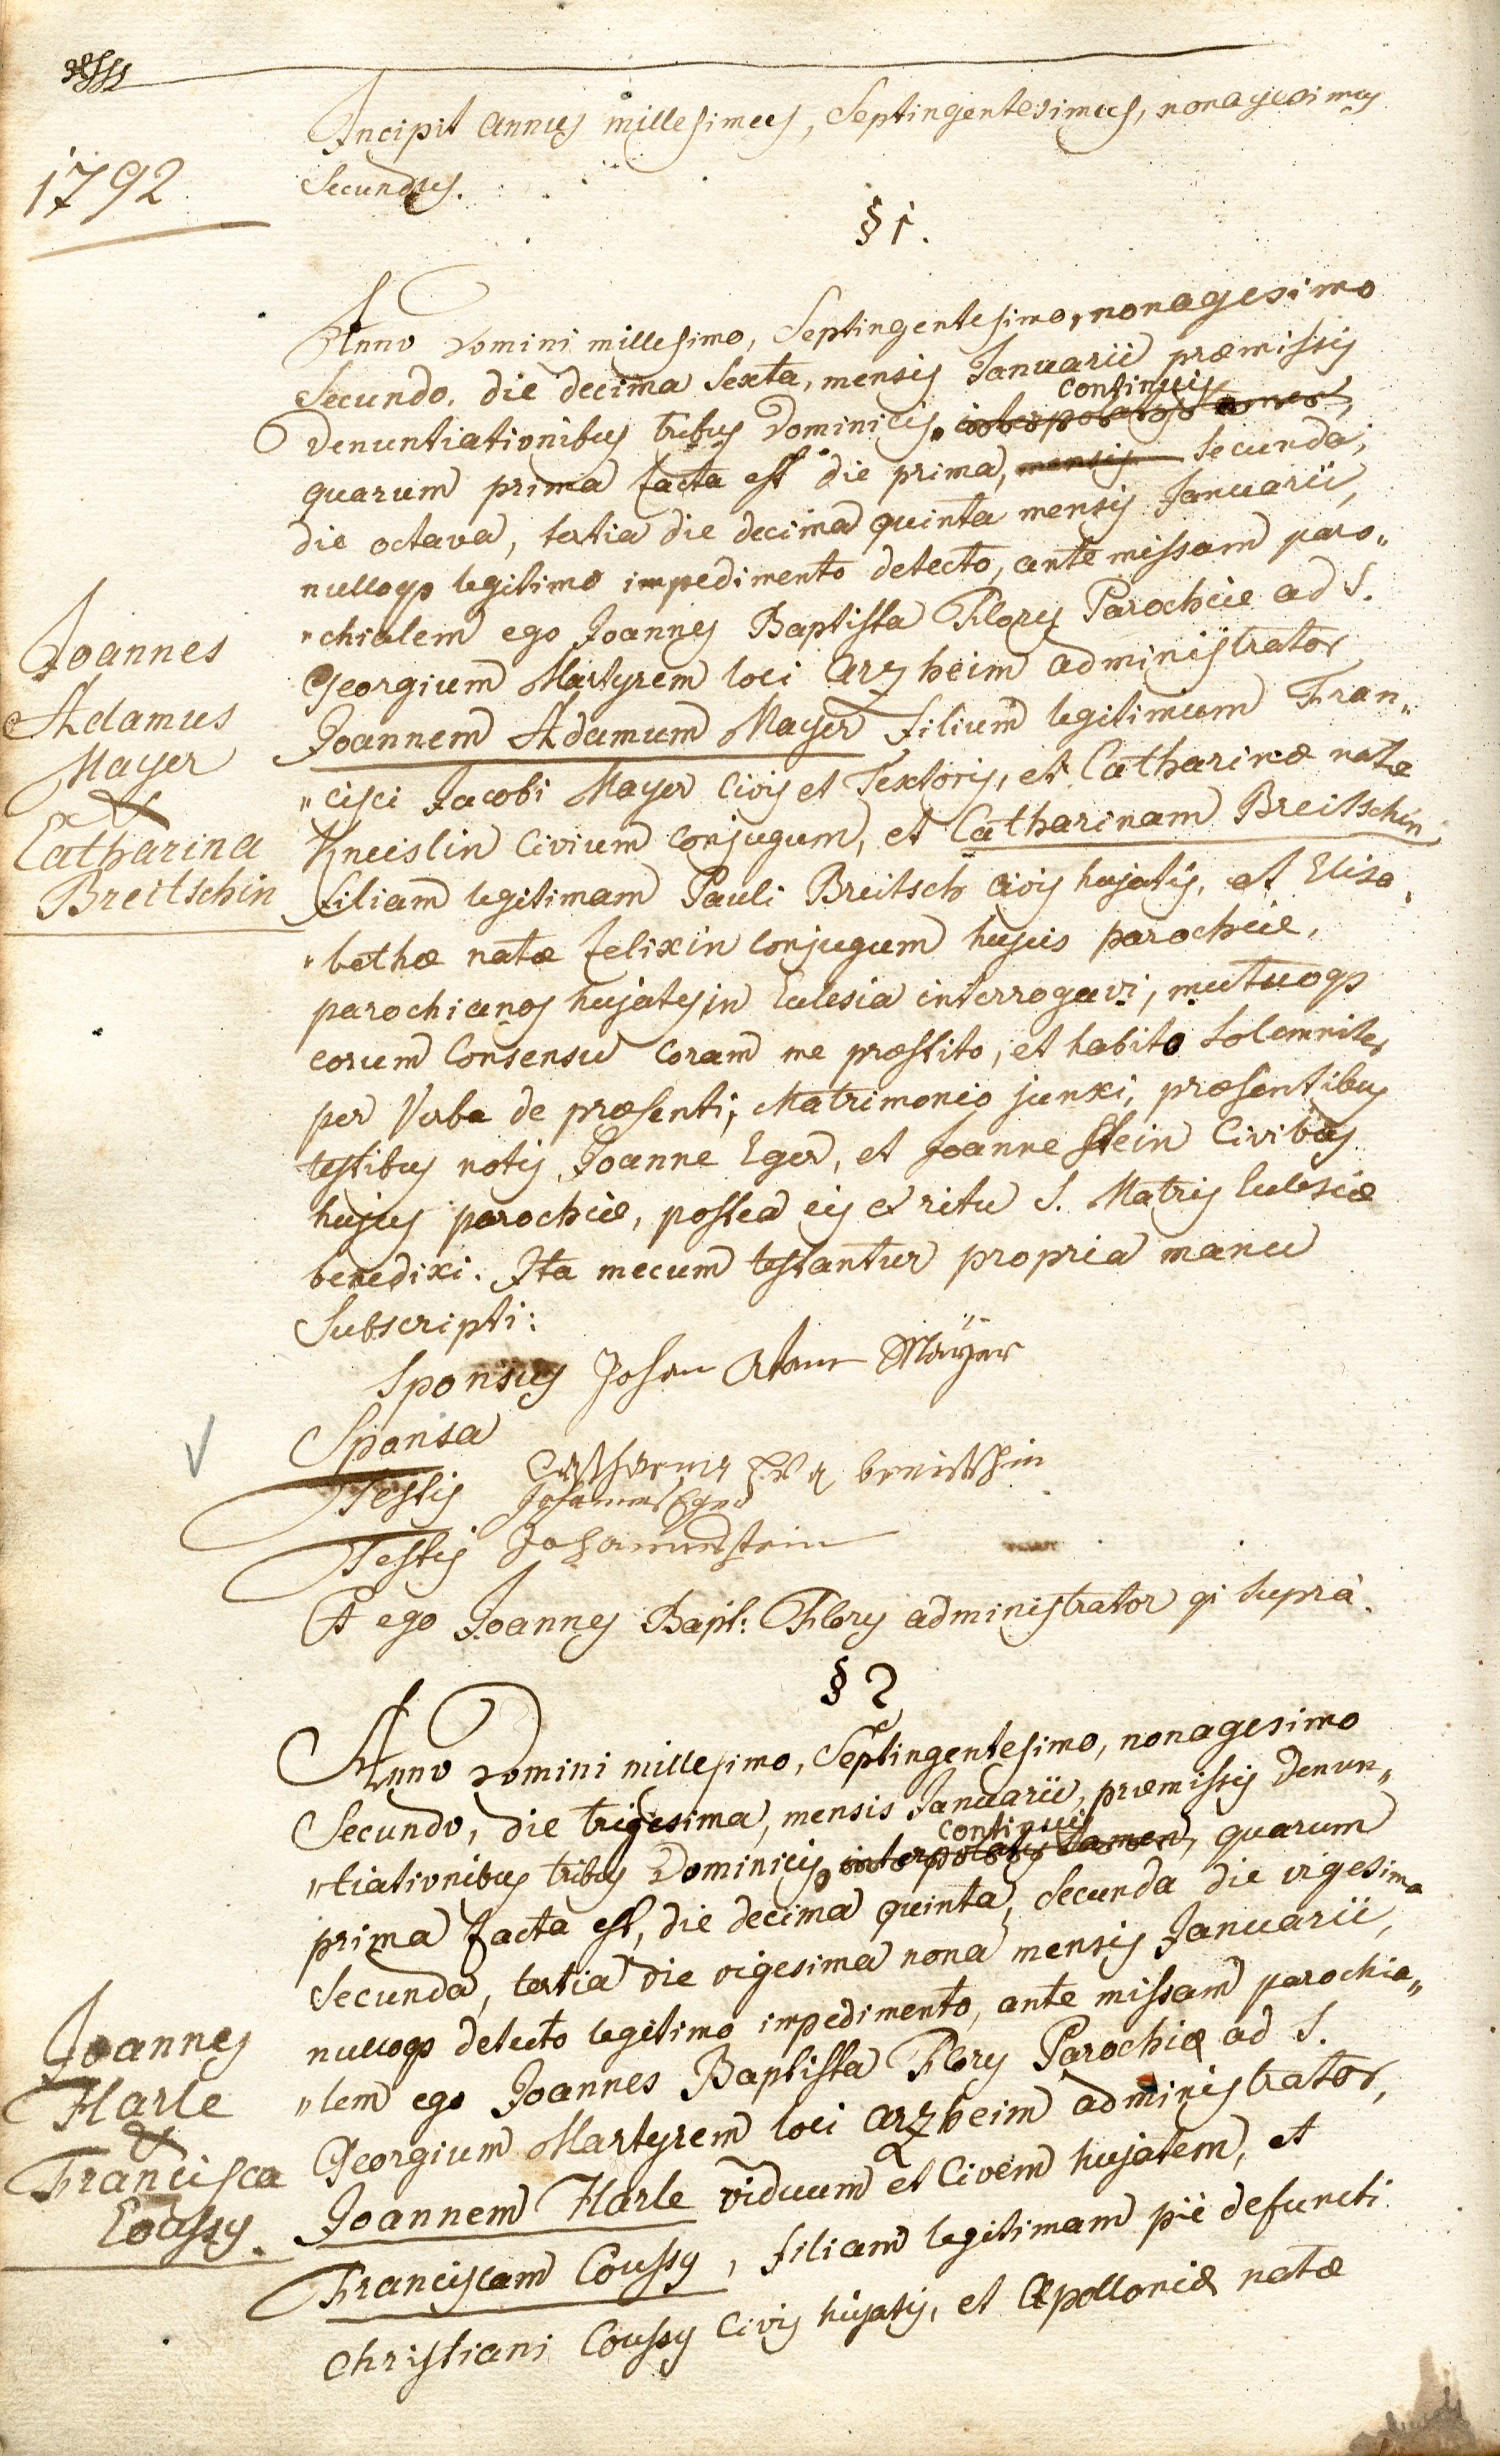 Incipit annus millesimus, Septingentesimus, nonagesimus
1792
Secundus.
§ 1.
Anno Domini millesimo, Septingentesimo, nonagesimo
Secundo, die decima Sexta, mensis Januarii præmissis
continuis
Denuntiationibus tribus Dominicis, interpolatis tamen,
quarum prima facta est die prima, mensis Secunda,
die octava, tertia die decima quinta mensis Januarii,
nulloqs legitimo impedimento detecto, ante missam paro„
„chialem ego Joannes Baptista Flory Parochiæ ad S.
Georgium Martyrem loci Arzheim administrator
Joannem Adamum Mayer filium legitimum Fran„
„cisci Jacobi Mayer Civis et Textoris, et Catharinæ natæ
Kneislin Civium conjugum, et Catharinam Breitschin
filiam legitimam Pauli Breitsch civis hujatis, et Elisa„
„bethæ natæ Felixin conjugum hujus parochiæ,
parochianos hujates in Ecclesia interrogavi, mutuoqs
eorum Consensu coram me præstito, et habito Solemniter
per Verba de præsenti, Matrimonio junxi, præsentibus
testibus notis, Joanne Eger, et Joanne Stein Civibus
hujus parochiæ, postea eis ex ritu S. Matris Ecclesiæ
benedixi. Ita mecum testantur propria manu
Subscripti:
Joannes
Adamus
Mayer
&
Catharina
Breitschin
Sponsus Johan Atam Mayer
Sponsa
Catharina Eva breitschin
Testis Johannes Eger
Testis Johannes Stein
Et ego Joannes Bapt: Flory administrator qi Supra.
§ 2
Anno Domini millesimo, Septingentesimo, nonagesimo
Secundo, die trigesima, mensis Januarii, præmissis Denun„
continuis
„tiationibus tribus Dominicis, interpolatis tamen, quarum
prima facta est, die decima quinta, Secunda die vigesima
Secunda, tertia die vigesima nona mensis Januarii,
nulloqs detecto legitimo impedimento, ante missam parochia„
„lem ego Joannes Baptista Flory Parochiæ ad S.
Georgium Martyrem loci Arzheim administrator,
Joannem Harle viduum et Civem hujatem, et
Franciscam Coussy, filiam legitimam piè defuncti
Christiani Coussy Civis hujatis, et Apolloniæ natæ
Joannes
Harle
&
Francisca
Coussy.